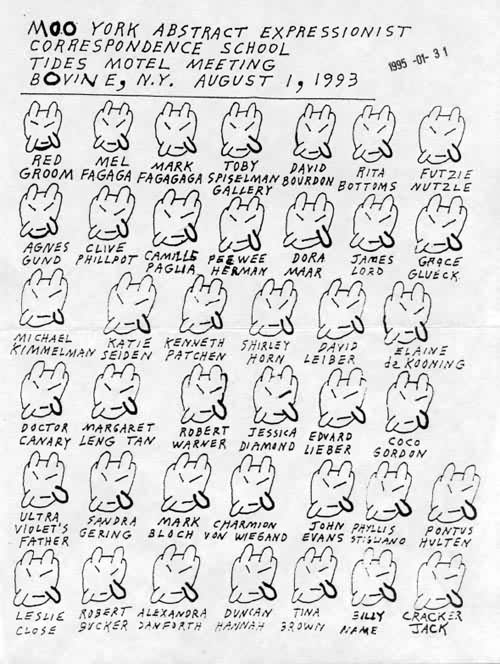 MOO YORK ABSTRACT EXPRESSIONIST
CORRESPONDENCE SCHOOL
TIDES MOTEL MEETING
BOVINE, N.Y. AUGUST 1, 1993
1995 -01- 31
RED GROOM
MEL FAGAGA
MARK FAGAGAGA
TOBY SPISELMAN GALLERY
DAVID BOURDON
RITA BOTTOMS
FUTZIE NUTZLE
AGNES GUND
CLIVE PHILLPOT
CAMILLE PAGLIA
PEEWEE HERMAN
DORA MAAR
JAMES LORD
GRACE GLUECK
MICHAEL KIMMELMAN
KATIE SEIDEN
KENNETH PATCHEN
SHIRLEY HORN
DAVID LEIBER
ELAINE de KOONING
DOCTOR CANARY
MARGARET LENG TAN
ROBERT WARNER
JESSICA DIAMOND
EDVARD LIEBER
COCO GORDON
ULTRA VIOLET'S FATHER
SANDRA GERING
MARK BLOCH
CHARMION VON WIEGAND
JOHN EVANS
PHYLLIS STIGLIANO
PONTUS HULTEN
LESLIE CLOSE
ROBERT BUCKER
ALEXANDRA DANFORTH
DUNCAN HANNAH
TINA BROWN
BILLY NAME
CRACKER JACK